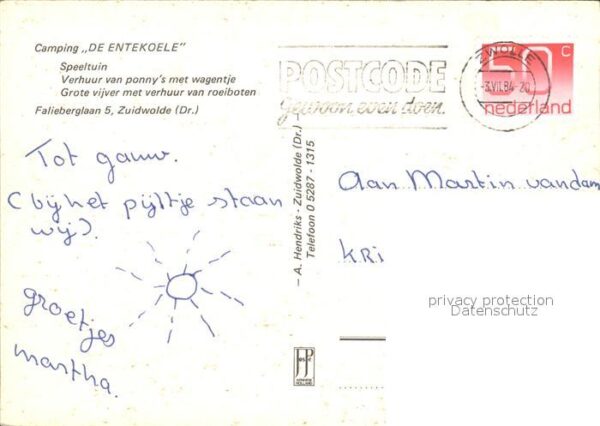 Camping „DE ENTEKOELE"
Speeltuin
Verhuur van ponny's met wagentje
Grote vijver met verhuur van roeiboten
Falieberglaan 5, Zuidwolde (Dr.)
POSTCODE
gewoon even doen.
ZWOLLE
-3.VII.84-20
50 C
nederland
Tot gauw.
(bij het pijltje staan
wij).
groetjes
martha.
— A. Hendriks - Zuidwolde (Dr.) —
— Telefoon 0 5287 - 1315
Aan Martin van dam
KRi
privacy protection
Datenschutz